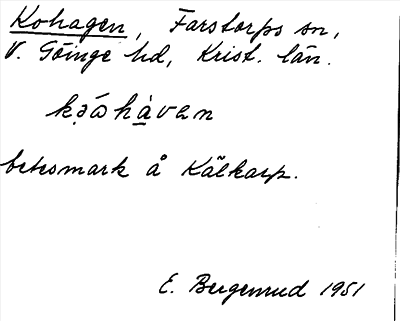 Kohagen, Farstorps sn,
V. Göinge hd, Krist. län.
betesmark å Kälkarp.
E. Bergenrud 1951